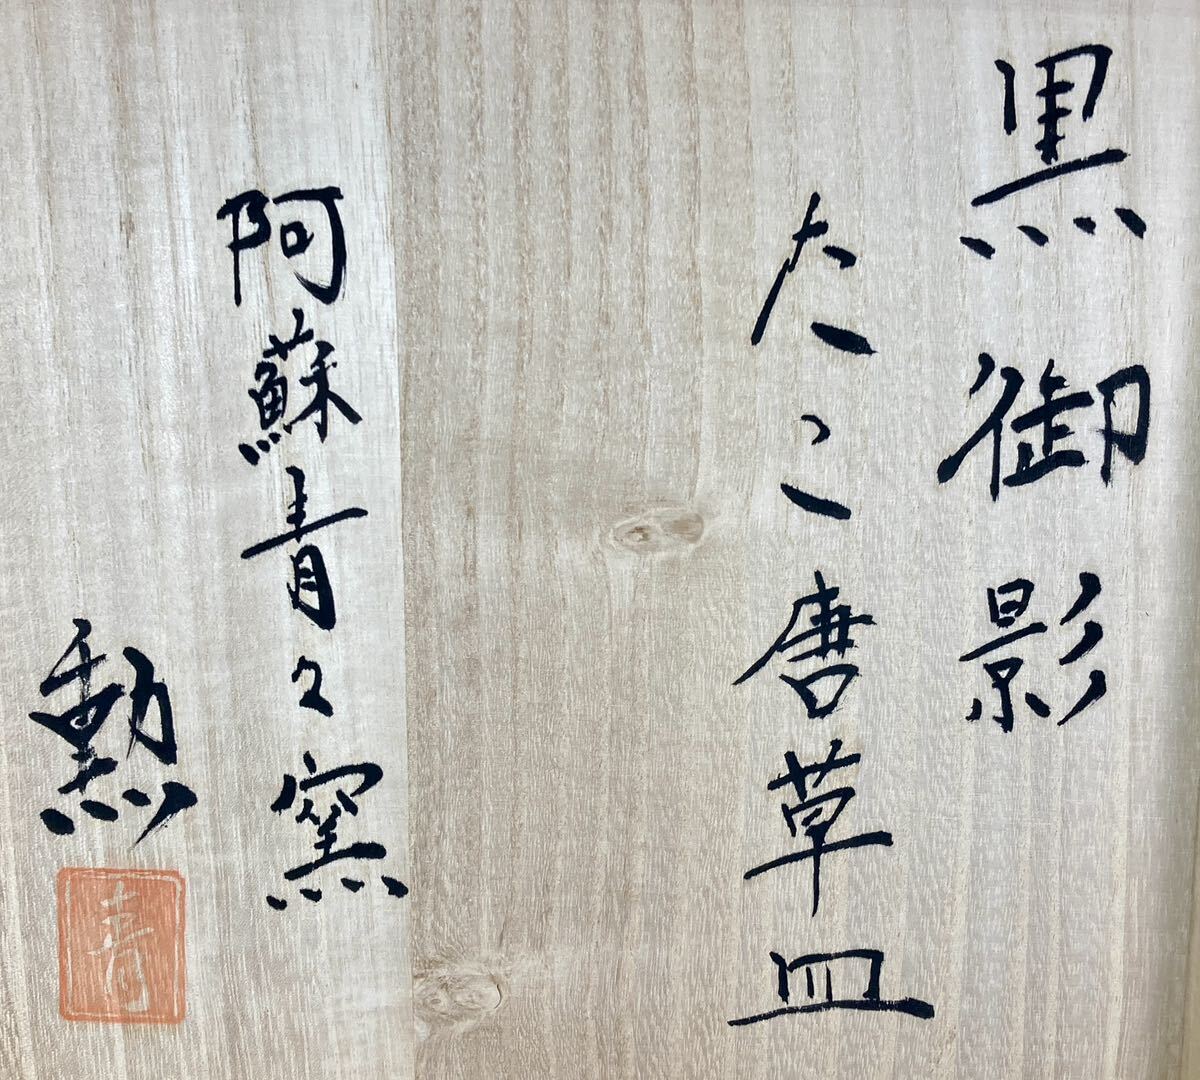 黒御影
たこ唐草皿
阿蘇青々窯
勲
青